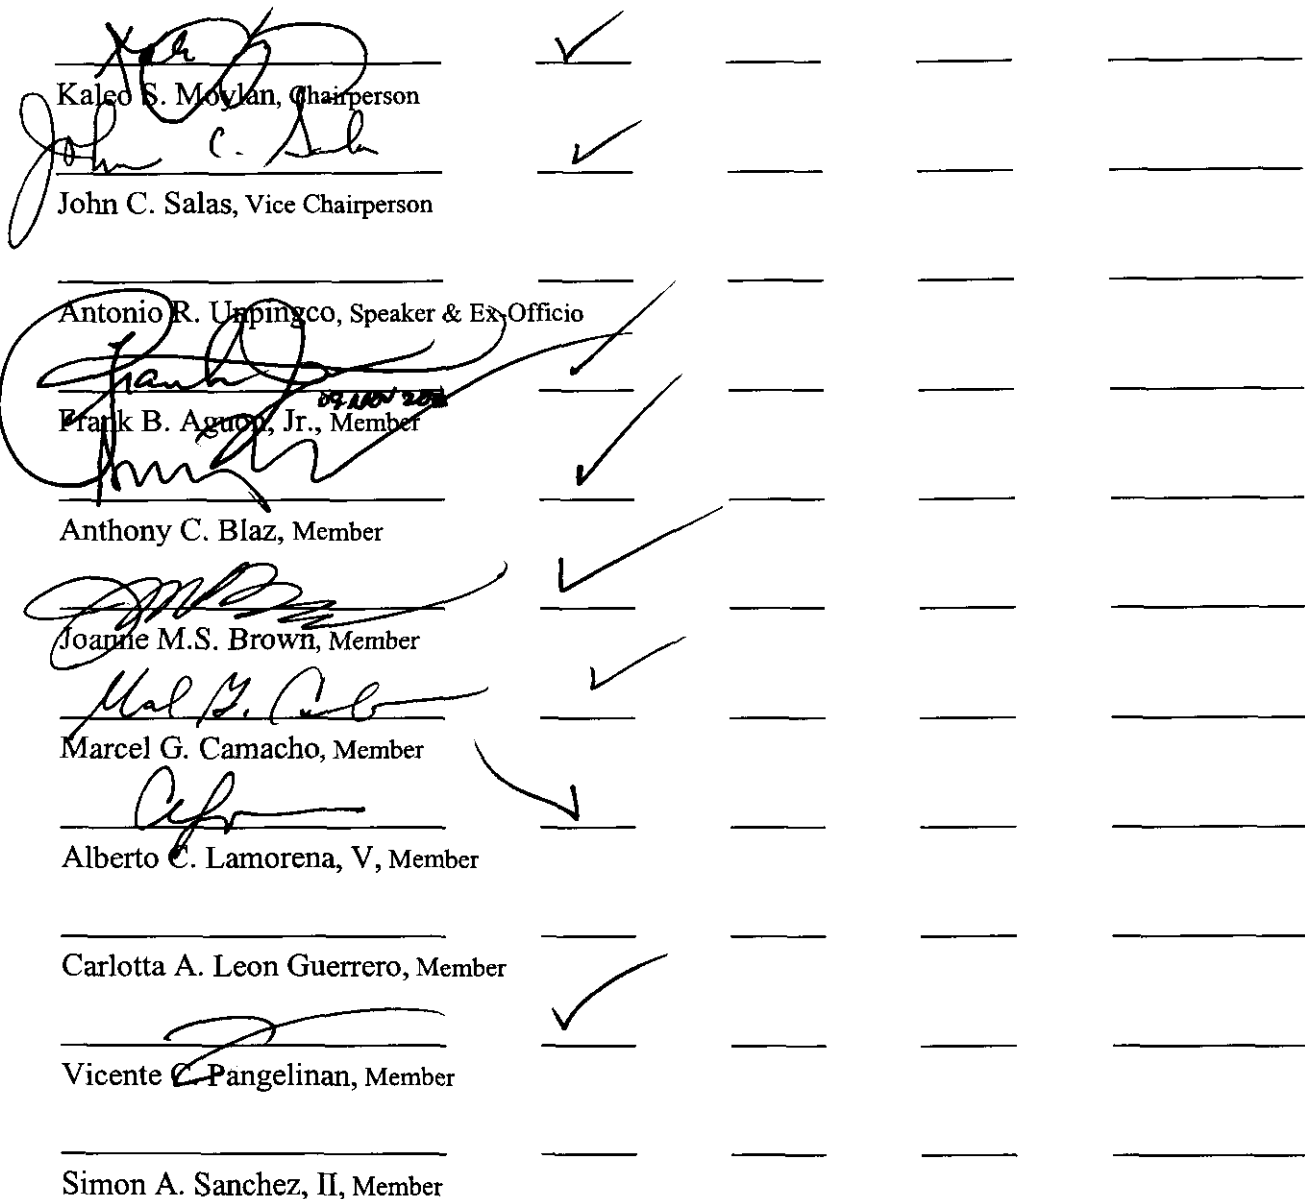 Kaleo S. Moylan, Chairperson
John C. Sala
John C. Salas, Vice Chairperson
Antonio R. Unpingco, Speaker & Ex-Officio
Frank
Frank B. Aguon, Jr., Member
Anthony C. Blaz, Member
Joanne M.S. Brown, Member
Marcel G. Camacho, Member
Alberto C. Lamorena, V, Member
Carlotta A. Leon Guerrero, Member
Vicente C. Pangelinan, Member
Simon A. Sanchez, II, Member